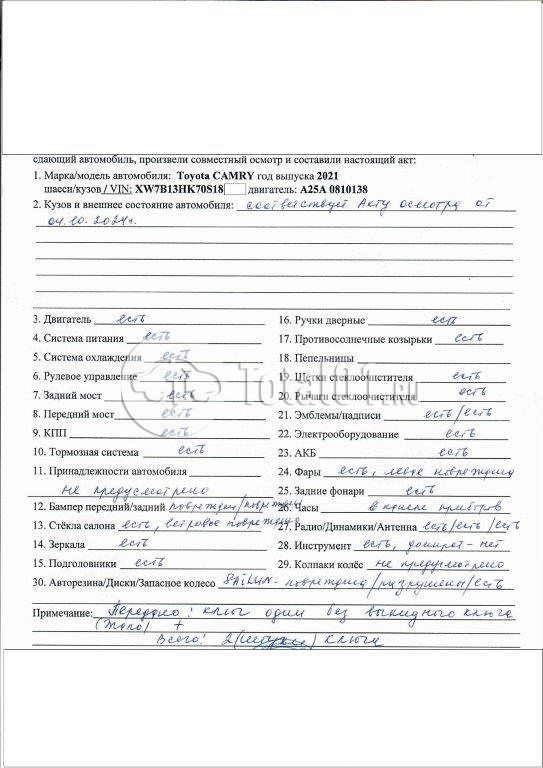 сдающий автомобиль, произвели совместный осмотр и составили настоящий акт:
1. Марка/модель автомобиля: Toyota CAMRY год выпуска 2021
шасси/кузов / VIN: XW7B13HK70S18 двигатель: A25A 0810138
2. Кузов и внешнее состояние автомобиля: соответствует Акту осмотра от
04.10.2024г.
3. Двигатель есть
4. Система питания есть
5. Система охлаждения есть
6. Рулевое управление есть
7. Задний мост есть
8. Передний мост есть
9. КПП есть
10. Тормозная система есть
11. Принадлежности автомобиля
не предусмотрено
12. Бампер передний/задний поврежден/поврежден
13. Стёкла салона есть, ветровое повреждено
14. Зеркала есть
15. Подголовники есть
16. Ручки дверные есть
17. Противосолнечные козырьки есть
18. Пепельницы
19. Щетки стеклоочистителя есть
20. Рычаги стеклоочистителя есть
21. Эмблемы/надписи есть/есть
22. Электрооборудование есть
23. АКБ есть
24. Фары есть, левая повреждена
25. Задние фонари есть
26. Часы в панели приборов
27. Радио/Динамики/Антенна есть/есть/есть
28. Инструмент есть, домкрат - нет
29. Колпаки колёс не предусмотрено
30. Авторезина/Диски/Запасное колесо SAILUN - повреждена/разрушены/есть
Примечание: Передано: ключ один без выкидного ключа
(жало) +
Всего: 2 ключа
Total01.ru